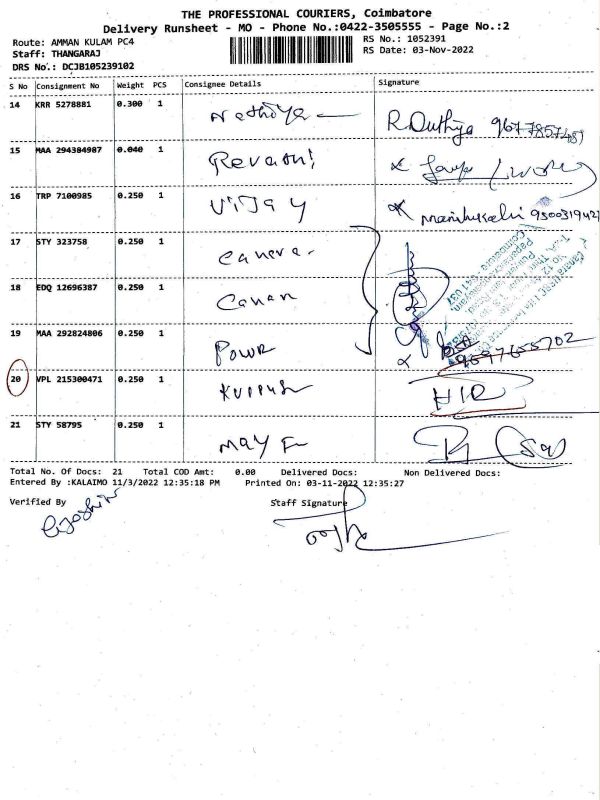 THE PROFESSIONAL COURIERS, Coimbatore
Delivery Runsheet - MO - Phone No.:0422-3505555 - Page No.:2
Route: AMMAN KULAM PC4
RS No.: 1052391
Staff: THANGARAJ
RS Date: 03-Nov-2022
DRS No.: DCJB105239102
S No Consignment No Weight PCS Consignee Details Signature
14 KRR 5278881 0.300 1 Nathiya
15 MAA 294384987 0.040 1 Revathi
16 TRP 7100985 0.250 1 Vijay
17 STY 323758 0.250 1 Canera
18 EDQ 12696387 0.250 1 Canan
19 MAA 292824806 0.250 1 Powr 9697655702
20 VPL 215300471 0.250 1 HIR
21 STY 58795 0.250 1 may
Total No. Of Docs: 21 Total COD Amt: 0.00 Delivered Docs: Non Delivered Docs:
Entered By :KALAIMO 11/3/2022 12:35:18 PM Printed On: 03-11-2022 12:35:27
Verified By Staff Signature